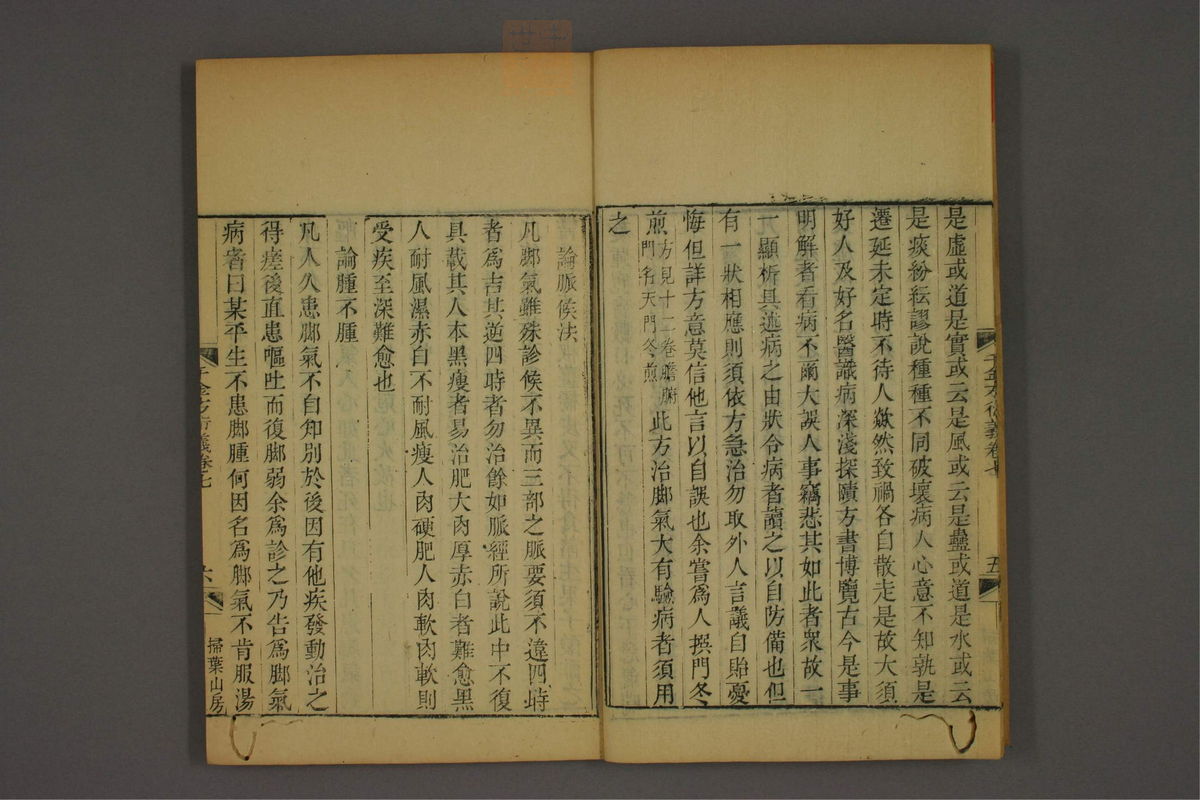 是虛或道是實或云是風或云是蠱或道是水或云
是痰紛紜謬說種種不同破壞病人心意不知孰是
遷延未定時不待人歘然致禍各自散走是故大須
好人及好名醫識病深淺探賾方書博覽古今是事
明解者看病不爾大誤人事竊悲其如此者衆故一
一顯析具述病之由狀令病者讀之以自防備也但
有一狀相應則須依方急治勿取外人言議自貽憂
悔但詳方意莫信他言以自誤也余嘗爲人撰門冬
煎方見十二卷膽腑門名天門冬煎此方治脚氣大有驗病者須用
之
千金方衍義卷七
五
論脈候法
凡脚氣雖殊診候不異而三部之脈要須不違四時
者爲吉其逆四時者勿治餘如脈經所說此中不復
具載其人本黑瘦者易治肥大肉厚赤白者難愈黑
人耐風濕赤白不耐風瘦人肉硬肥人肉軟肉軟則
受疾至深難愈也
論腫不腫
凡人久患脚氣不自知別於後因有他疾發動治之
得瘥後直患嘔吐而復脚弱余爲診之乃告爲脚氣
病者曰某平生不患脚腫何因名爲脚氣不肯服湯
千金方衍義卷七
六
掃葉山房